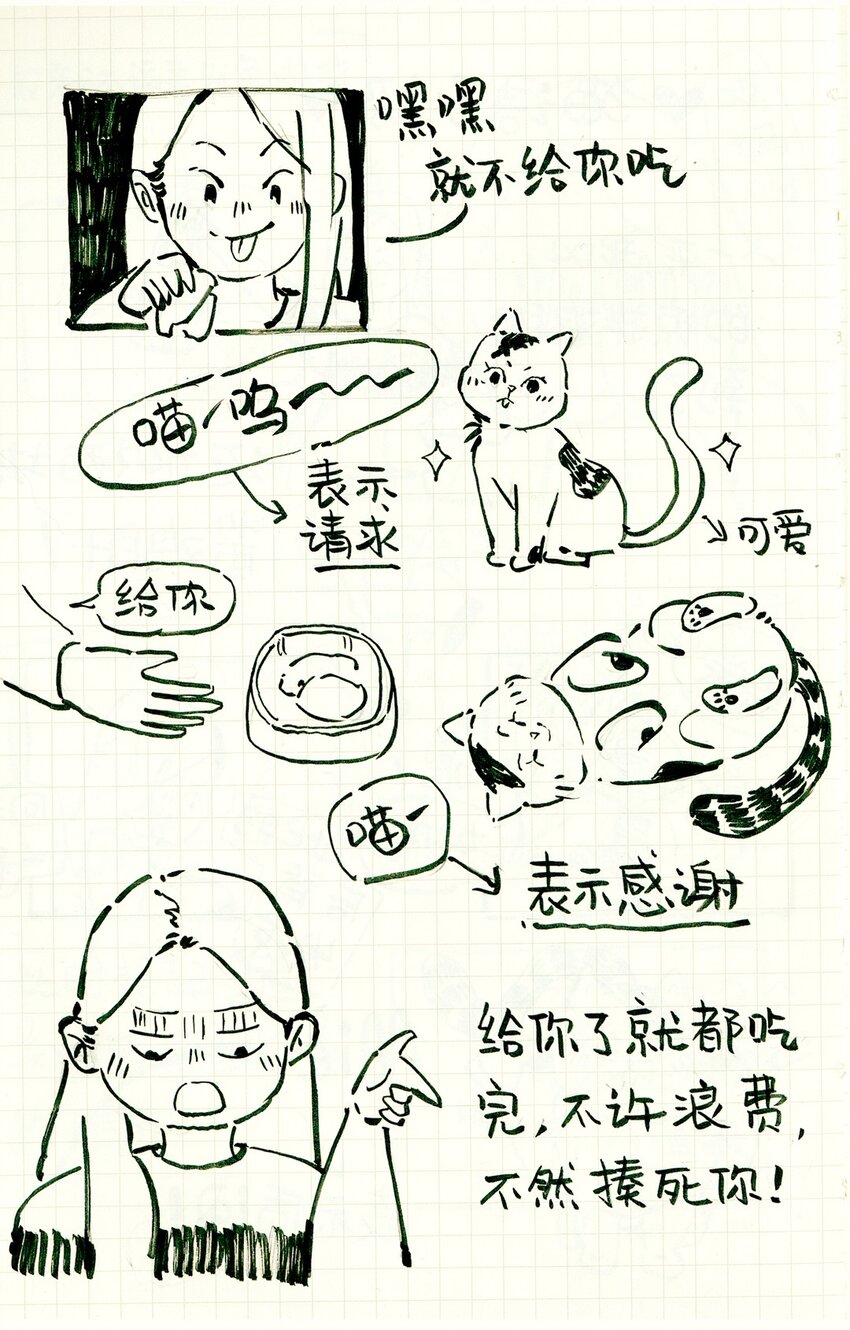 嘿嘿
就不给你吃
喵呜~~~
表示
请求
可爱
给你
喵
表示感谢
给你了就都吃
完,不许浪费,
不然揍死你!